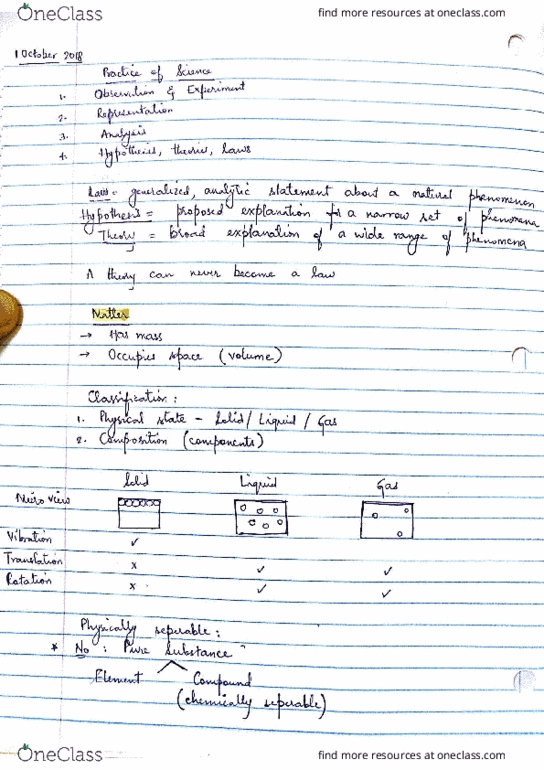 OneClass find more resources at oneclass.com
1 October 2018
Practice of Science
1. Observation & Experiment
2. Representation
3. Analysis
4. Hypothesis, theories, laws
Law = generalized, analytic statement about a natural phenomenon
Hypothesis = proposed explanation for a narrow set of phenomena
Theory = broad explanation of a wide range of phenomena
A theory can never become a law
Matter
→ Has mass
→ Occupies space (volume)
Classification :
1. Physical state - Solid / Liquid / Gas
2. Composition (components)
Solid Liquid Gas
Micro view
Vibration ✓
Translation x ✓ ✓
Rotation x ✓ ✓
Physically seperable :
* No : Pure Substance
Element Compound
(chemically seperable)
OneClass find more resources at oneclass.com